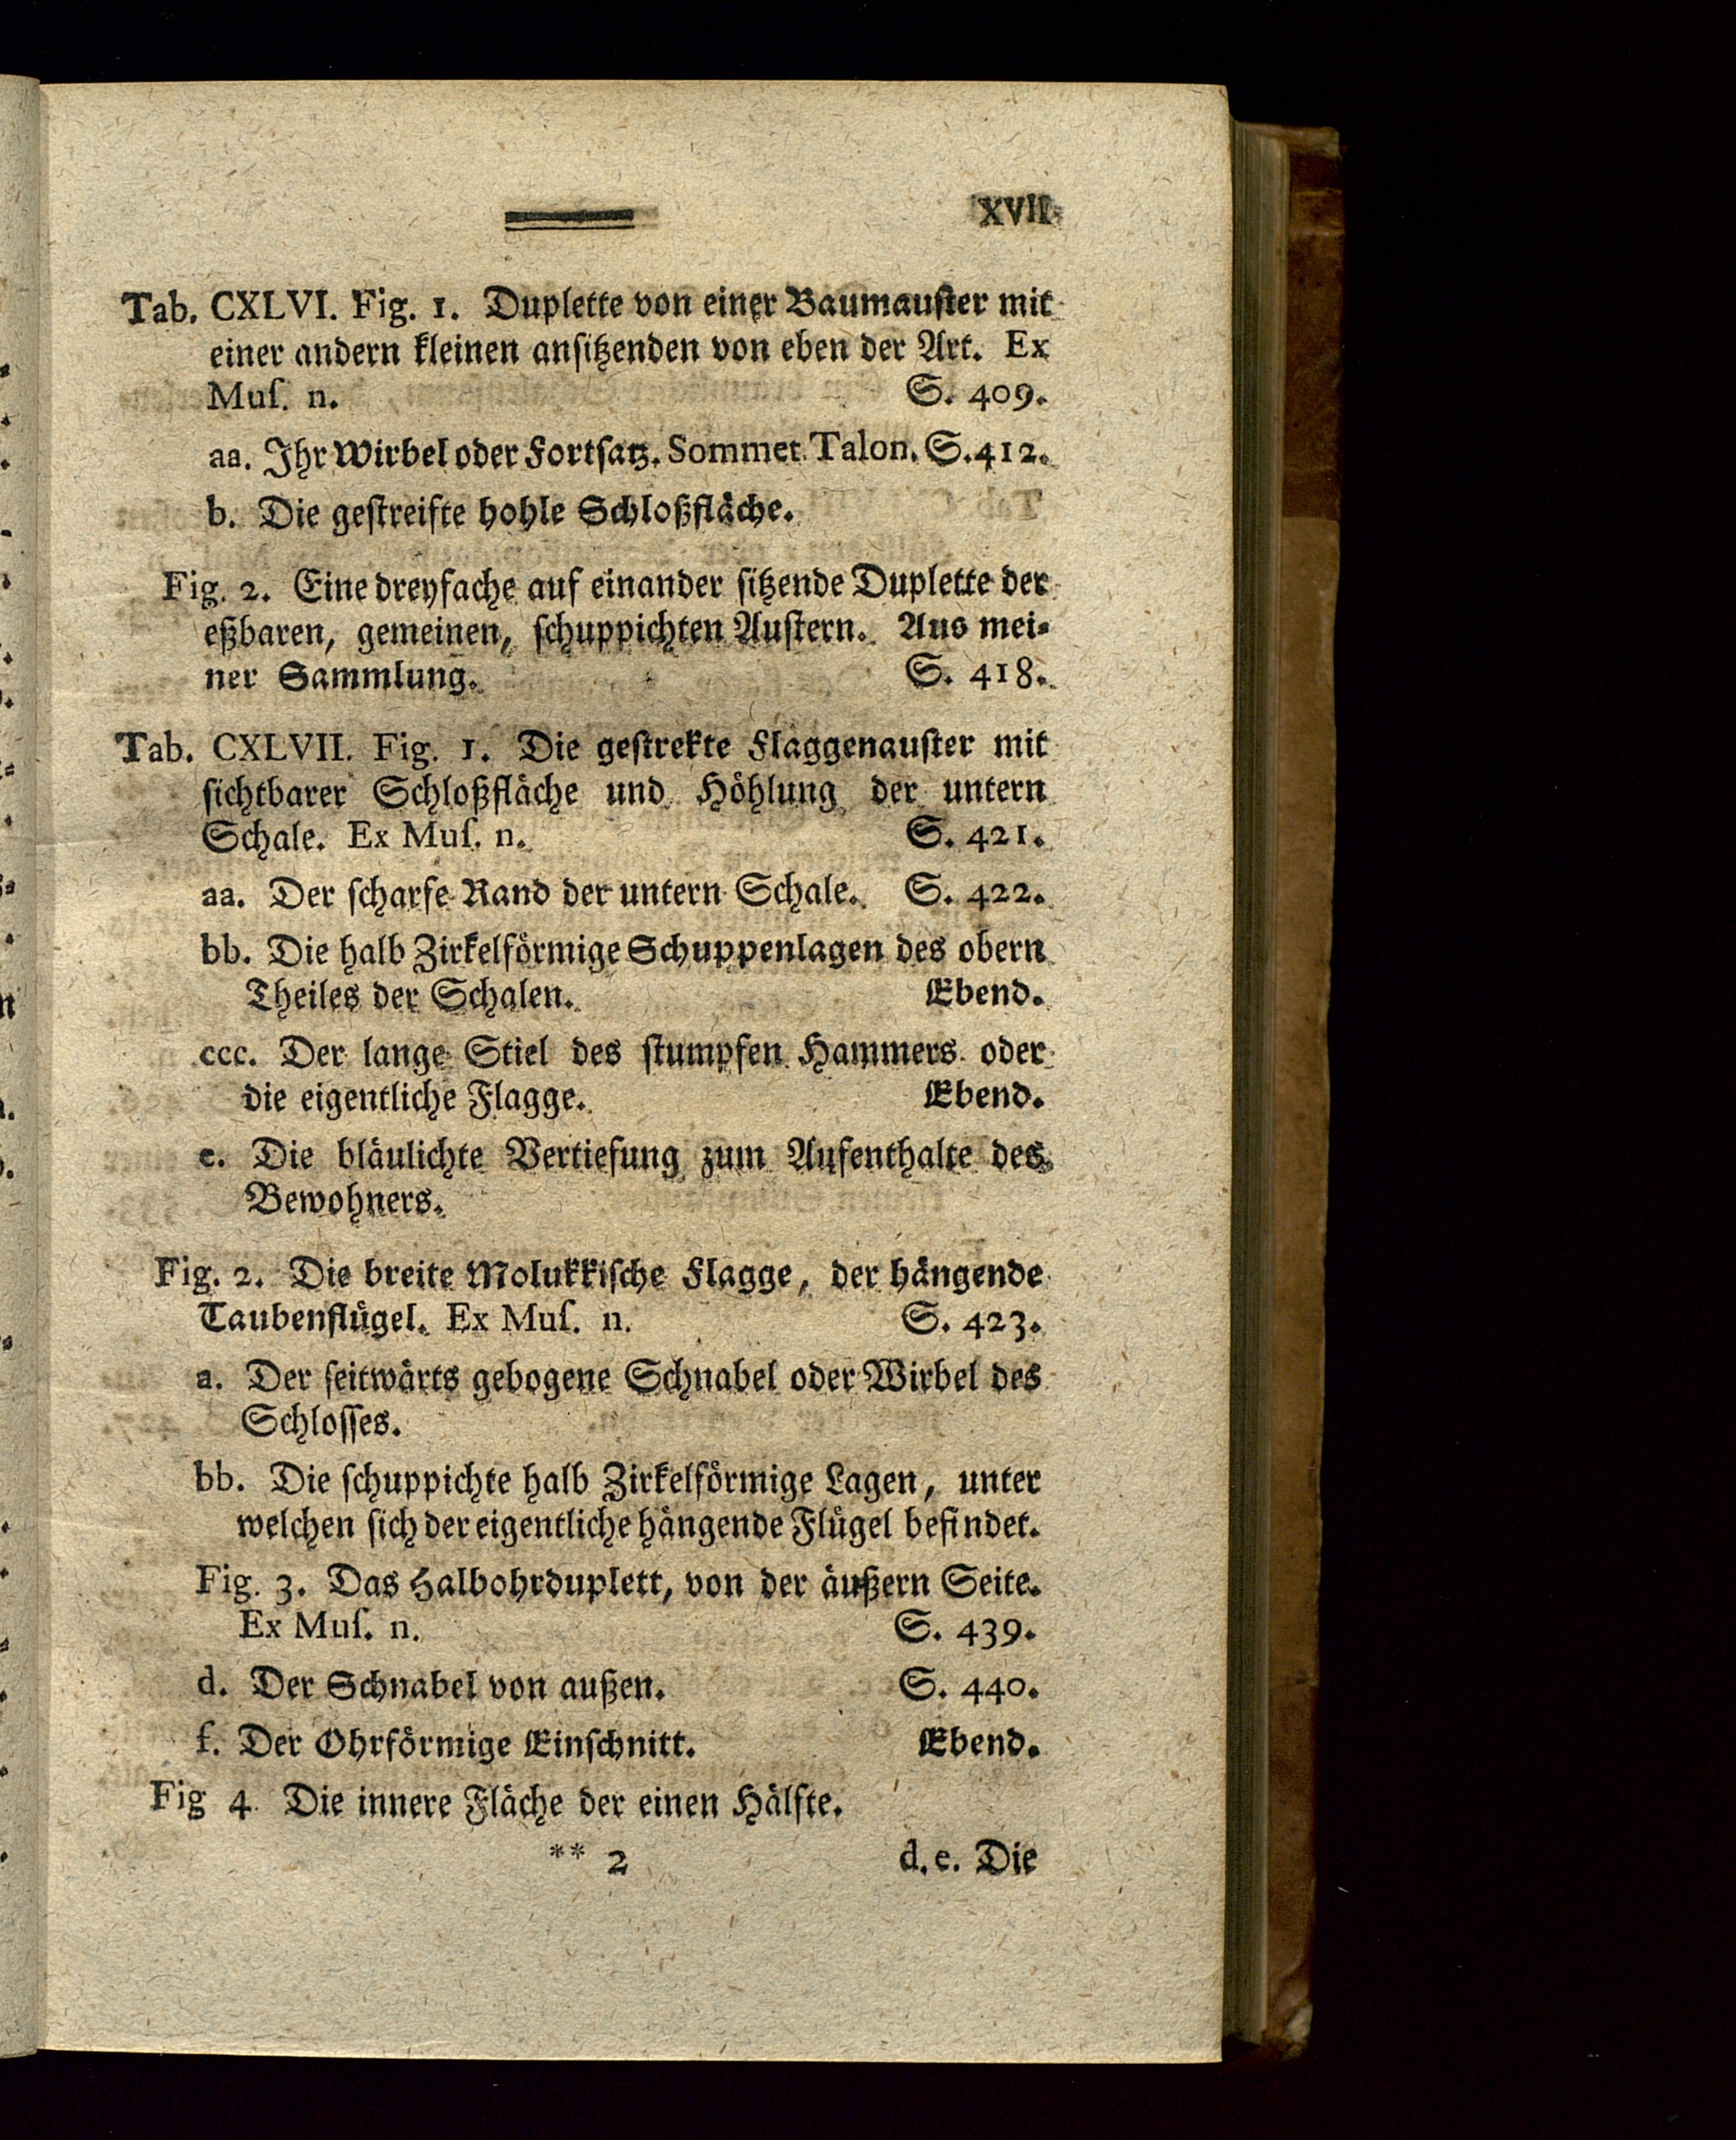 XVII
Tab. CXLVI. Fig. 1. Duplette von einer Baumauſter mit
einer andern kleinen anſitzenden von eben der Art. Ex
Muſ. n. S. 409.
aa. Ihr Wirbel oder Fortſatz. Sommet Talon. S. 412.
b. Die geſtreifte hohle Schloßfläche.
Fig. 2. Eine dreyfache auf einander ſitzende Duplette der
eßbaren, gemeinen, ſchuppichten Auſtern. Aus mei-
ner Sammlung. S. 418.
Tab. CXLVII. Fig. 1. Die geſtrekte Flaggenauſter mit
ſichtbarer Schloßfläche und Höhlung der untern
Schale. Ex Muſ. n. S. 421.
aa. Der ſcharfe Rand der untern Schale. S. 422.
bb. Die halb Zirkelförmige Schuppenlagen des obern
Theiles der Schalen. Ebend.
ccc. Der lange Stiel des ſtumpfen Hammers oder
die eigentliche Flagge. Ebend.
e. Die bläulichte Vertiefung zum Aufenthalte des
Bewohners.
Fig. 2. Die breite Molukkiſche Flagge, der hängende
Taubenflügel. Ex Muſ. n. S. 423.
a. Der ſeitwärts gebogene Schnabel oder Wirbel des
Schloſſes.
bb. Die ſchuppichte halb Zirkelförmige Lagen, unter
welchen ſich der eigentliche hängende Flügel befindet.
Fig. 3. Das Halbohrduplett, von der äußern Seite.
Ex Muſ. n. S. 439.
d. Der Schnabel von außen. S. 440.
f. Der Ohrförmige Einſchnitt. Ebend.
Fig 4. Die innere Fläche der einen Hälfte.
** 2 d. e. Die